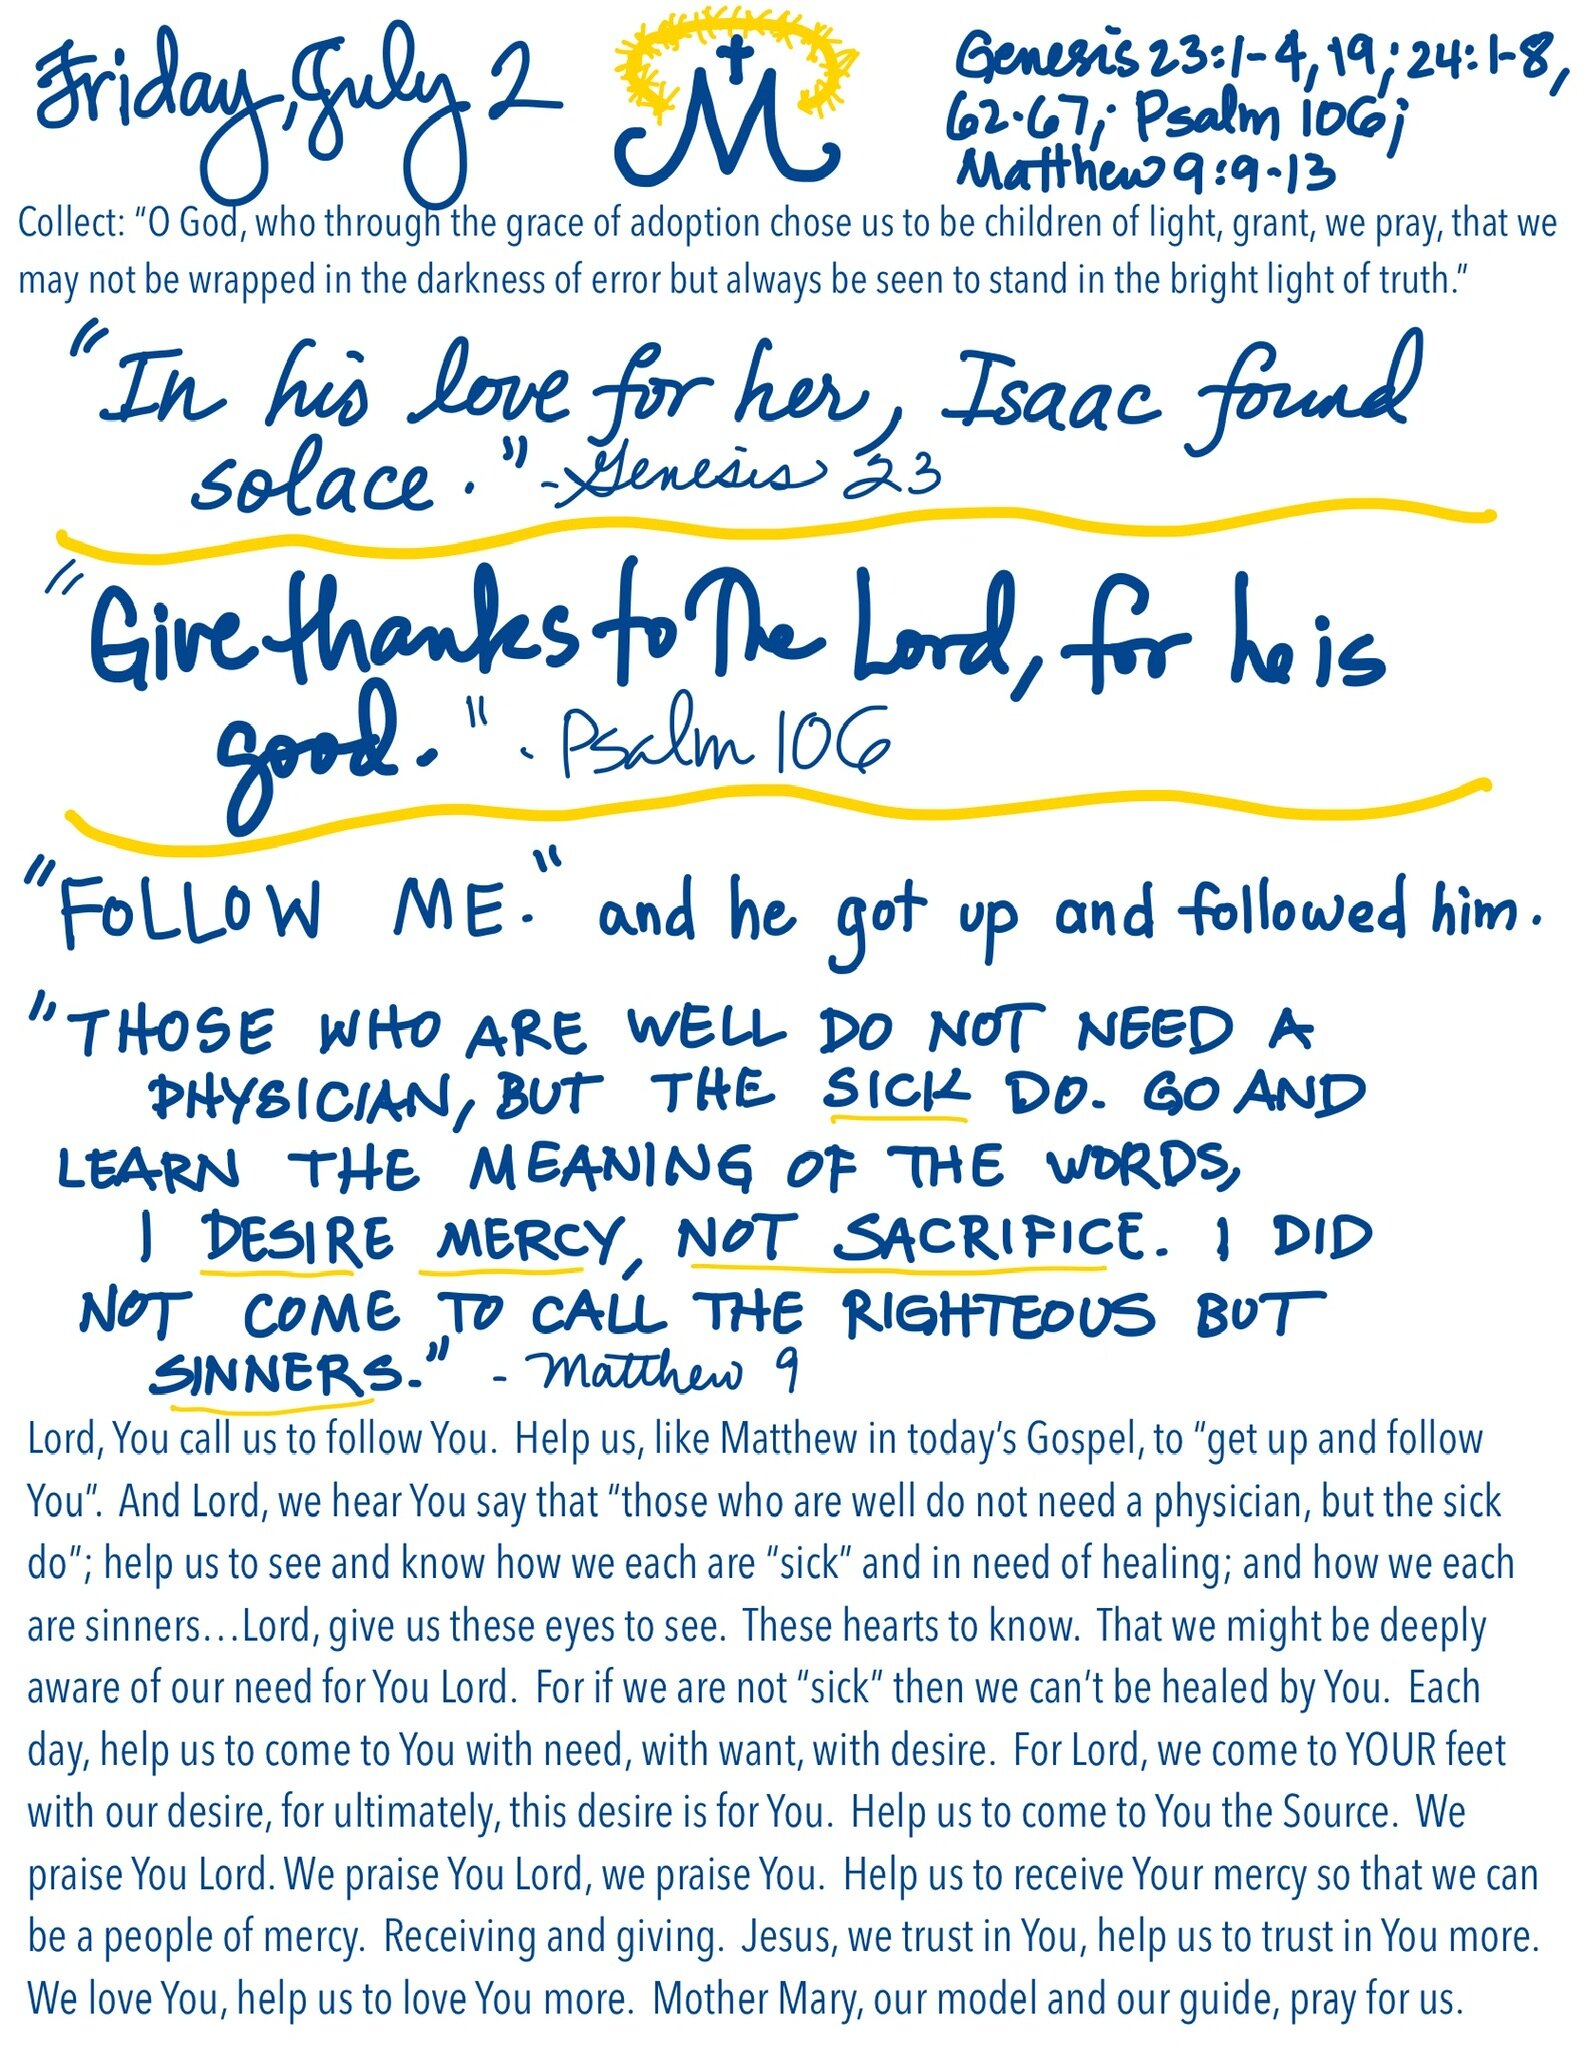 Friday, July 2
M
Genesis 23:1-4, 19; 24:1-8,
62-67; Psalm 106;
Matthew 9:9-13
Collect: “O God, who through the grace of adoption chose us to be children of light, grant, we pray, that we
may not be wrapped in the darkness of error but always be seen to stand in the bright light of truth.”
"In his love for her, Isaac found
solace." - Genesis 23
"Give thanks to The Lord, for he is
good." - Psalm 106
"FOLLOW ME." and he got up and followed him.
"THOSE WHO ARE WELL DO NOT NEED A
PHYSICIAN, BUT THE SICK DO. GO AND
LEARN THE MEANING OF THE WORDS,
I DESIRE MERCY, NOT SACRIFICE. I DID
NOT COME TO CALL THE RIGHTEOUS BUT
SINNERS." - Matthew 9
Lord, You call us to follow You.  Help us, like Matthew in today’s Gospel, to “get up and follow
You”.  And Lord, we hear You say that “those who are well do not need a physician, but the sick
do”; help us to see and know how we each are “sick” and in need of healing; and how we each
are sinners…Lord, give us these eyes to see.  These hearts to know.  That we might be deeply
aware of our need for You Lord.  For if we are not “sick” then we can’t be healed by You.  Each
day, help us to come to You with need, with want, with desire.  For Lord, we come to YOUR feet
with our desire, for ultimately, this desire is for You.  Help us to come to You the Source.  We
praise You Lord. We praise You Lord, we praise You.  Help us to receive Your mercy so that we can
be a people of mercy.  Receiving and giving.  Jesus, we trust in You, help us to trust in You more.
We love You, help us to love You more.  Mother Mary, our model and our guide, pray for us.